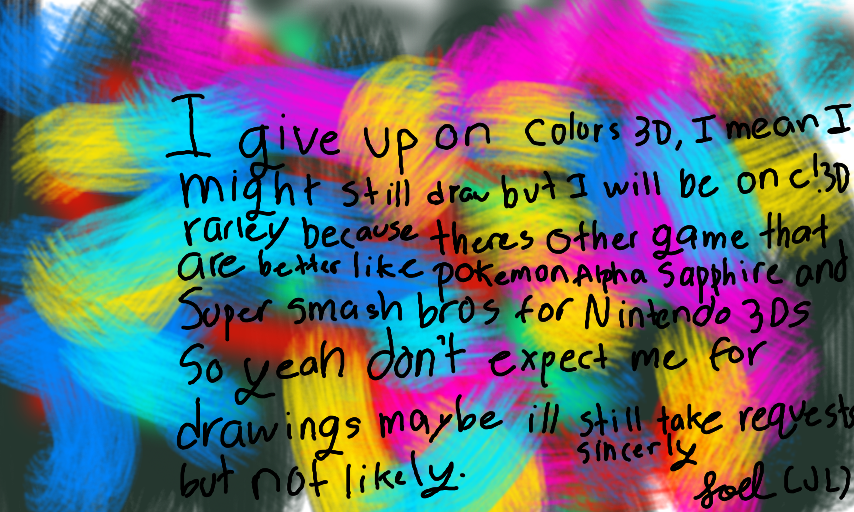 I give up on Colors 3D, I mean I
might still draw but I will be on c!3D
rarley because theres other game that
are better like pokemon Alpha Sapphire and
Super smash bros for Nintendo 3DS
So yeah don't expect me for
drawings maybe ill still take requests
but not likely.
sincerly
Joel (JL)